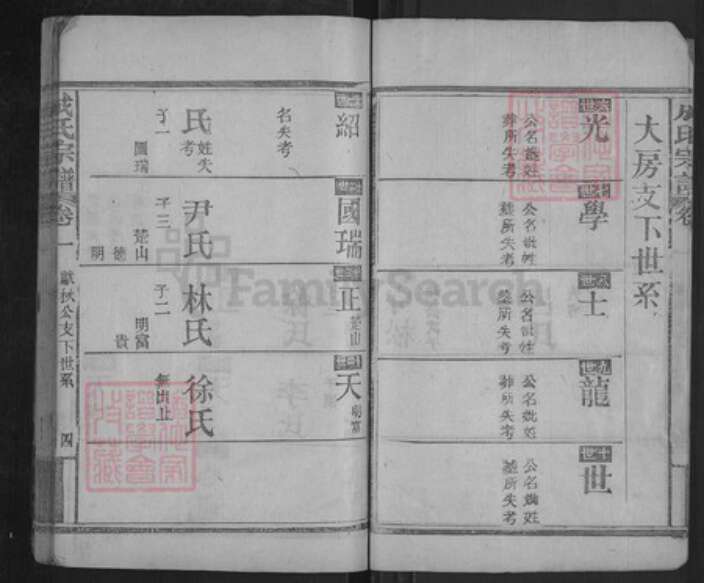 大房支下世系
六世
光
公名妣姓
葬所失考
七世
學
公名妣姓
葬所失考
八世
士
公名妣姓
葬所失考
九世
龍
公名妣姓
葬所失考
十世
世
公名妣姓
葬所失考
紹
名失考
氏
姓失考
子一
國瑞
國瑞
尹氏
子三
楚山
德
明
正
楚山
林氏
子二
明富
貴
天
明富
徐氏
無出止
氏宗譜
卷一
獻秋公支下世系
四
FamilySearch